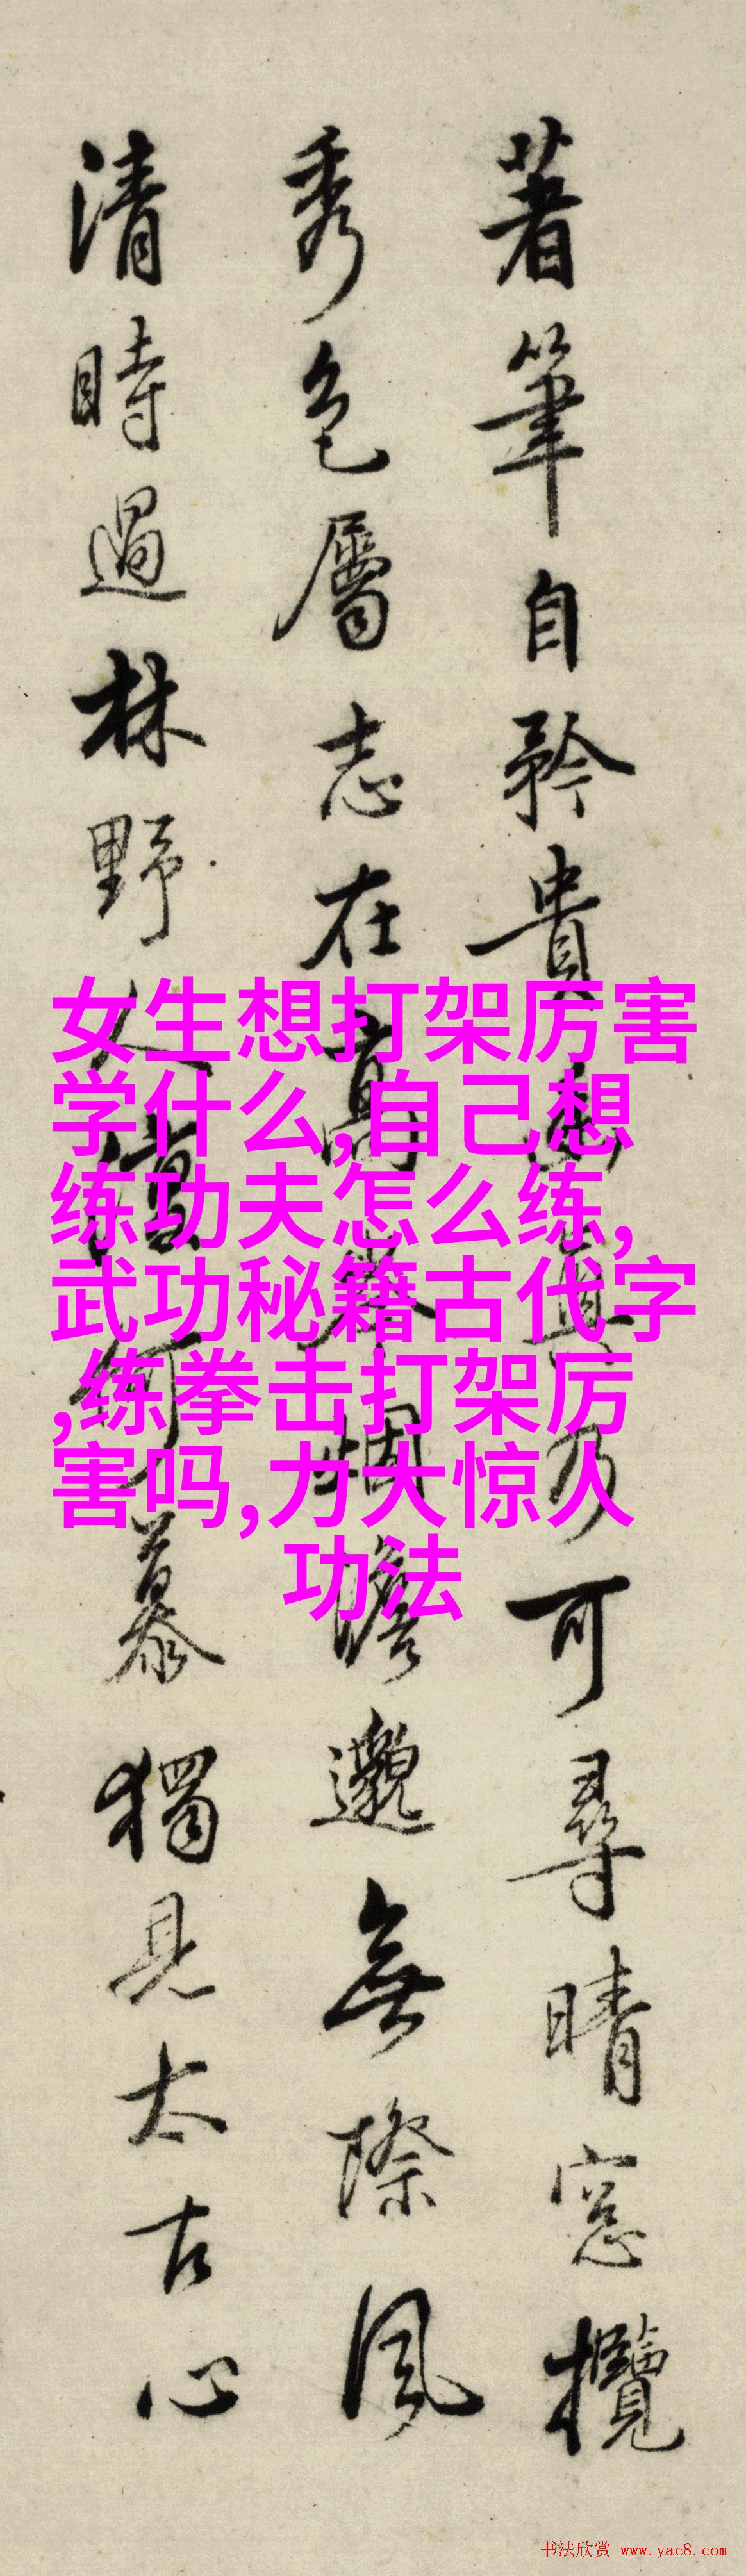 著筆自矜貴乃可尋晴窓攬
秀色屬志在高烟瞻邈無際風
清時過林野人何慕獨見太古心
女生想打架厉害
学什么,自己想
练功夫怎么练,
武功秘籍古代字
,练拳击打架厉
害吗,力大惊人
功法
书法欣赏 www.yac8.com